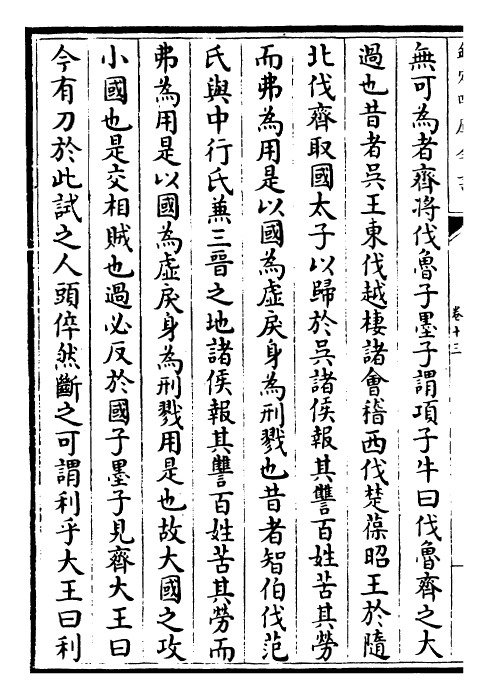 無可為者齊將伐魯子墨子謂項子牛曰伐魯齊之大
過也昔者吳王東伐越棲諸會稽西伐楚葆昭王於隨
北伐齊取國太子以歸於吳諸侯報其讐百姓苦其勞
而弗為用是以國為虛戾身為刑戮也昔者智伯伐范
氏與中行氏兼三晉之地諸侯報其讐百姓苦其勞而
弗為用是以國為虛戾身為刑戮用是也故大國之攻
小國也是交相賊也過必反於國子墨子見齊大王曰
今有刀於此試之人頭倅然斷之可謂利乎大王曰利
卷十三